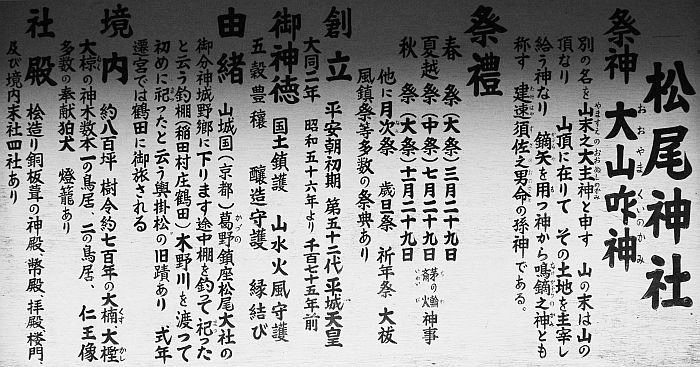 松尾神社
祭神 大山咋神
おおやまくいのかみ
別の名を山末之大主神と申す 山の末は山の
やますえのおおぬしのかみ
頂なり 山頂に在りて その土地を主宰し
給う神なり 鏑矢を用つ神から鳴鏑之神とも
称す 建速須佐之男命の孫神である。
祭禮
春 祭(大祭)三月二十九日
夏越 祭(中祭)七月二十九日 茅の輪 神事
秋 祭(大祭)十月二十九日
他に月次祭 歳旦祭 祈年祭 大祓
風鎮祭等多数の祭典あり
創立 平安朝初期 第五十一代 平城天皇
大同二年 昭和五十六年より 千百七十五年前
御神徳 国土鎮護 山水火風守護
五穀豊穣 醸造守護 縁結び
由緒 山城国(京都)葛野鎮座松尾大社の
かづの
御分神城野郷に下ります途中棚を釣って祀った
と云う釣棚(稲田村庄鶴田)木野川を渡って
初めに祀ったと云う輿掛松の旧蹟あり 式年
遷宮では鶴田に御旅される
境内 約八百坪 樹令約七百年の大楠 大樫
くす かし
大椋の神木数本 一の鳥居、二の鳥居、仁王像
多数の奉献狛犬 燈籠あり
社殿 桧造り銅板葺の神殿、幣殿、拝殿、楼門、
及び境内末社四社あり